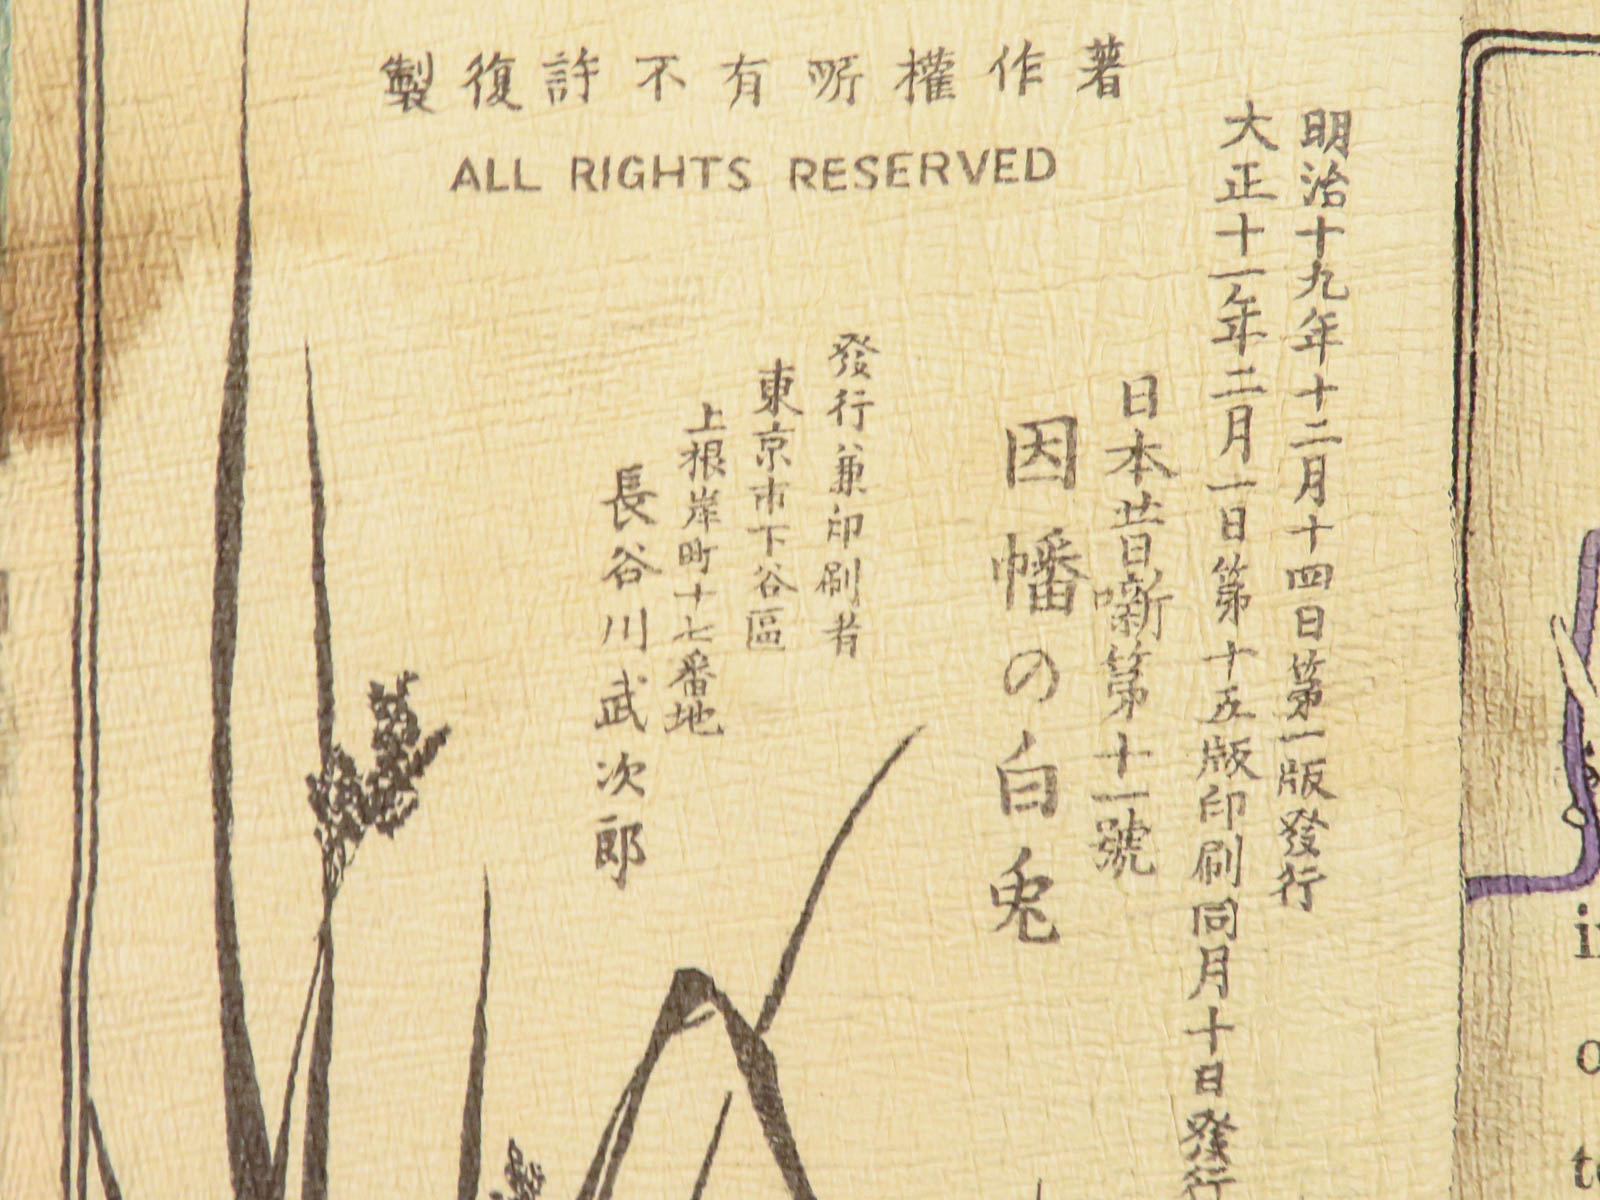 著作權所有不許復製
ALL RIGHTS RESERVED
明治十九年十二月十四日第一版發行
大正十一年二月一日第十五版印刷同月十日發行
日本昔噺第十一號
因幡の白兎
發行兼印刷者
東京市下谷區
上根岸町十七番地
長谷川武次郎